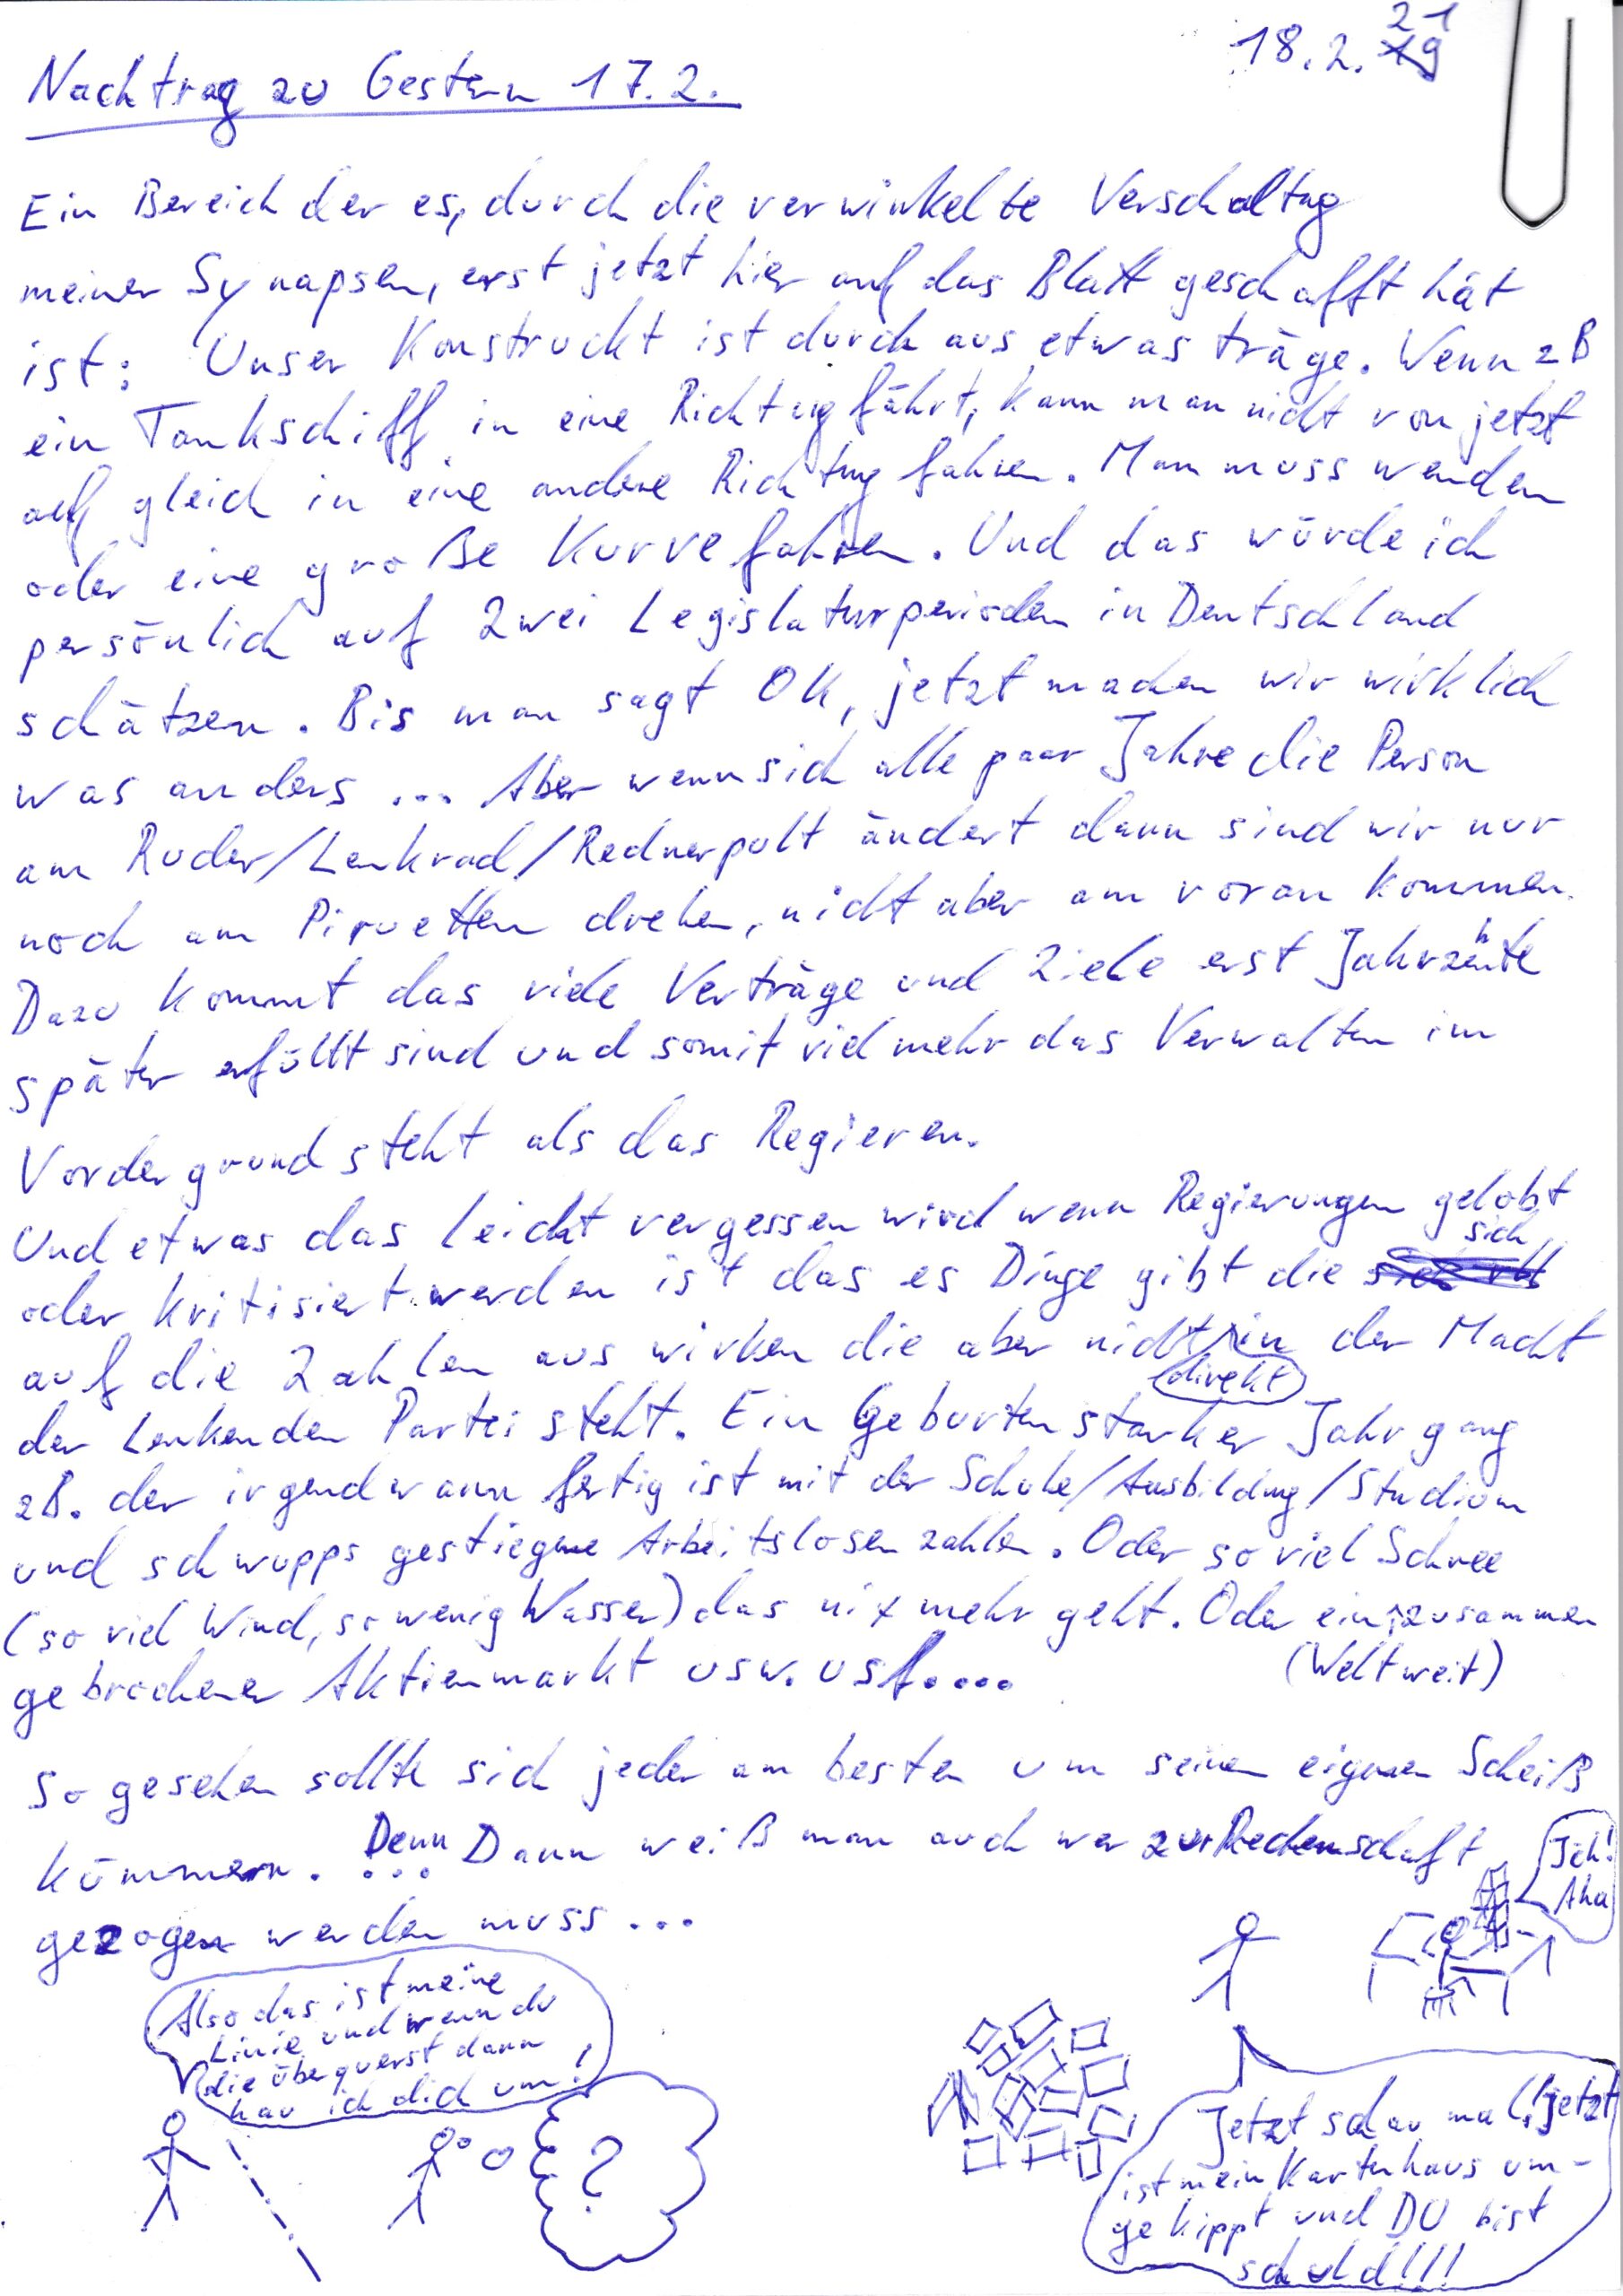 18.2.21
19
Nachtrag zu Gestern 17.2.
Ein Bereich der es, durch die verwinkelte Verschaltug
meiner Synapsen, erst jetzt hier auf das Blatt geschafft hät
ist: Unser Konstruckt ist durch aus etwas träge. Wenn zB
ein Tankschiff in eine Richtug fährt, kann man nicht von jetzt
auf gleich in eine andere Richtug fahren. Man muss wenden
oder eine große Kurve fahren. Und das würde ich
persönlich auf zwei Legislaturperioden in Deutschland
schätzen. Bis man sagt OK, jetzt machen wir wirklich
was anders ... Aber wenn sich alle paar Jahre die Person
am Ruder/Lenkrad/Rednerpult ändert dann sind wir nur
noch am Piruetten drehen, nicht aber am voran kommen.
Dazu kommt das viele Verträge und Ziele erst Jahrzehnte
später erfüllt sind und somit viel mehr das Verwalten im
Vordergrund steht als das Regieren.
Und etwas das leicht vergessen wird wenn Regierungen gelobt
oder kritisiert werden ist das es Dinge gibt die sich
auf die Zahlen aus wirken die aber nicht direkt in der Macht
der Lenkenden Partei steht. Ein Geburtenstarker Jahrgang
zB. der irgendwann fertig ist mit der Schule/Ausbildung/Studium
und schwupps gestiegene Arbeitslosenzahlen. Oder so viel Schnee
(so viel Wind, so wenig Wasser) das nix mehr geht. Oder ein zusammen
(Weltweit)
gebrochener Aktienmarkt usw. usf....
So gesehen sollte sich jeder am besten um seinen eigenen Scheiß
kümmern. ... Denn Dann weiß man auch wer zur Rechenschaft
gezogen werden muss ...
Ich!
Aha
Also das ist meine
Linie und wenn du
die überquerst dann
hau ich dich um!
?
Jetzt schau mal! jetzt
ist mein Kartenhaus um-
gekippt und DU bist
schuld!!!